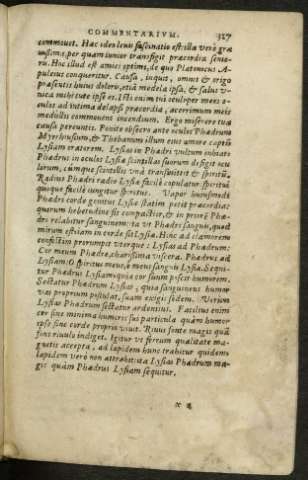 COMMENTARIVM. 327
commouet. Hac ideo leuis fascinatio est illa verò gra
uissima, per quam iuuenis transfigit præcordia senio-
ris. Hoc illud est amici optimi, de quo Platonicus A-
puleius conqueritur. Causa, inquit, omnis & origo
præsentis huius doloris, etiã medela ipsa, & salus v-
nica mihi tute ipse es. Isti enim tui oculi per meos o-
culos ad intima delapsi præcordia, acerrimum meis
medullis commouent incendium. Ergo miserere tua
causa pereuntis. Ponite obsecro ante oculos Phædrum
Myrhinusium, & Thebanum illum eius amore captũ
Lysiam oratorem. Lysias in Phædri vultum inhiat:
Phædrus in oculos Lysiæ scintillas suorum defigit ocu
lorum, cumque scintillis vnà transmittit & spiritũ.
Radius Phædri radio Lysiæ facilè copulatur: spiritui
quoque facilè iungitur spiritus. Vapor huiusmodi
Phædri corde genitus Lysiæ statim petit præcordia:
quorum hebetudine fit compactior, & in priorẽ Phæ-
dri relabitur sanguinem: ita vt Phædri sanguis, quod
mirum est iam in corde sit Lysiæ. Hinc ad clamorem
confestim prorumpit vterque: Lysias ad Phædrum:
Cor meum Phædre, charissima viscera. Phædrus ad
Lysiam: O spiritus meus, ò meus sanguis Lysia. Sequi-
tur Phædrus Lysiam quia cor suum poscit humorem.
Sectatur Phædrum Lysias, quia sanguineus humor
vas proprium postulat, suam exigit sedem. Verùm
Lysias Phædrum sectatur ardentius. Facilius enim
cor sine minima humoris sui particula quàm humor
ipse sine corde proprio viuit. Riuus fonte magis quã
fons riuulo indiget. Igitur vt ferrum qualitate ma-
gnetis accepta, ad lapidem hunc trahitur quidem:
lapidem verò non attrahit: ita Lysias Phædrum ma-
gis quàm Phædrus Lysiam sequitur.